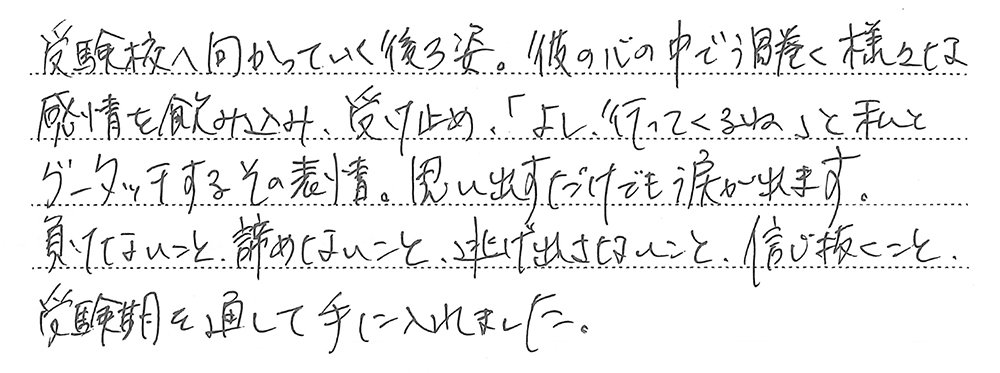 受験校へ向かっていく後ろ姿。彼の心の中でう渦巻く様々な
感情を飲み込み、受け止め、「よし、行ってくるね」と私と
グータッチするその表情。思い出すだけでもう涙が出ます。
負けないこと、諦めないこと、逃げ出さないこと、信じ抜くこと、
受験期を通して手に入れました。